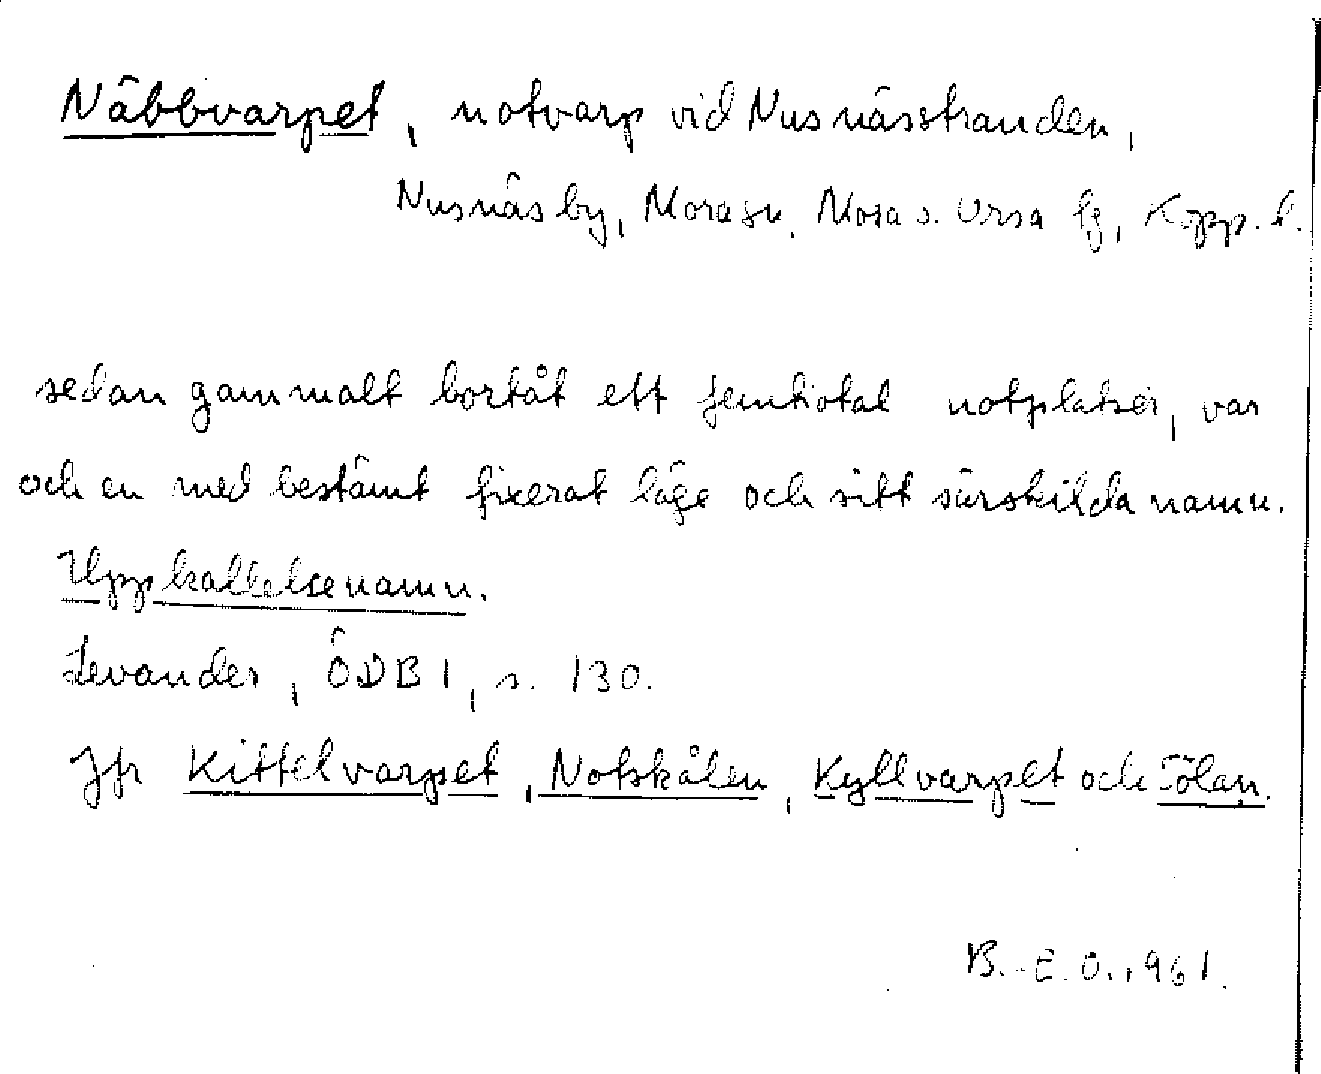 Näbbvarpet, notvarp vid Nusnässtranden,
Nusnäs by, Mora sn, Mora o. Orsa tg, Kopp. l.
sedan gammalt bortåt ett femtiotal notplatser, var
och en med bestämt fixerat läge och sitt särskilda namn.
Uppkallelsenamn.
Levander, ÖDB 1, s. 130.
Jfr Kittelvarpet, Notskålen, Kyllvarpet och Sölan.
B.-E.O. 1961.